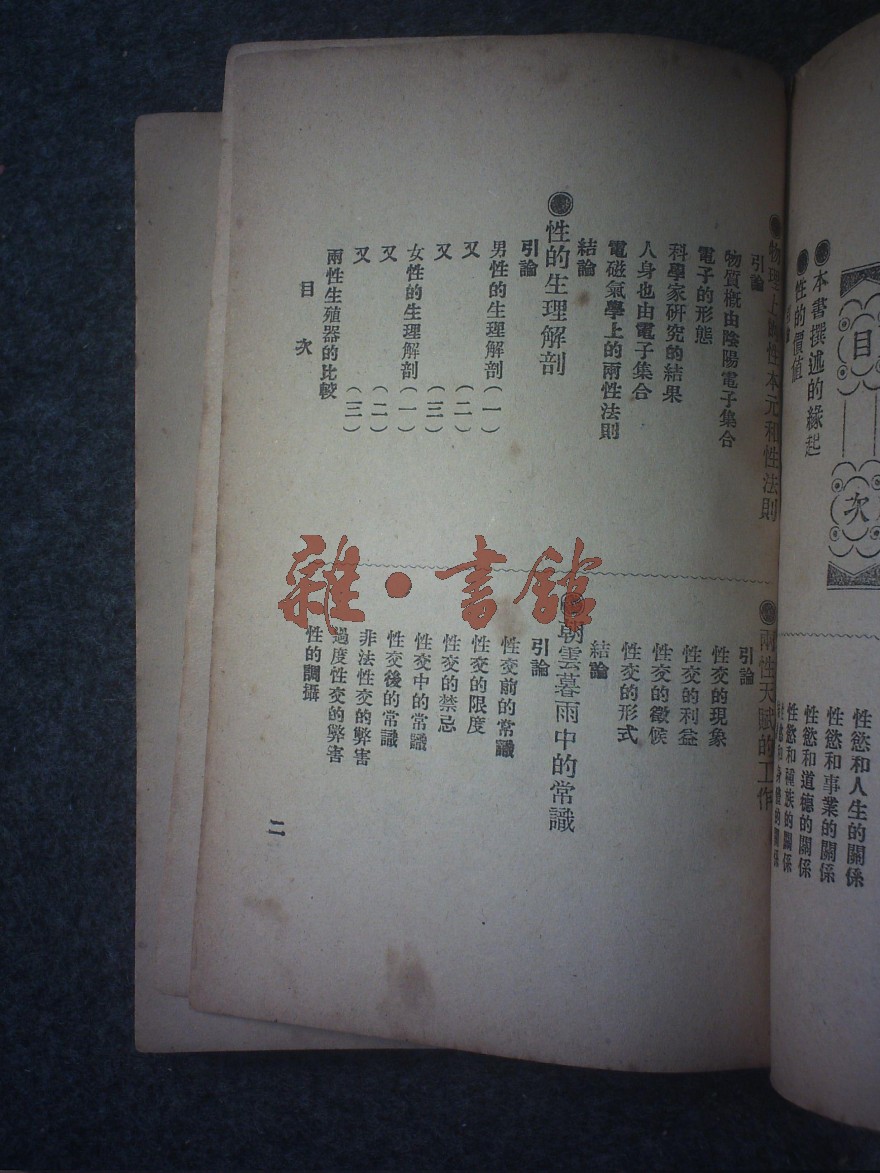 目次
●本書撰述的緣起
●性的價值
性慾和人生的關係
性慾和事業的關係
性慾和道德的關係
性慾和種族的關係
●物理上的性本元和性法則
引論
物質概由陰陽電子集合
電子的形態
科學家研究的結果
人身也由電子集合
電磁氣學上的兩性法則
結論
●性的生理解剖
引論
男性的生理解剖(一)
又(二)
又(三)
女性的生理解剖(一)
又(二)
又(三)
兩性生殖器的比較
目次
●兩性天賦的工作
引論
性交的現象
性交的利益
性交的徵候
性交的形式
結論
●朝雲暮雨中的常識
引論
性交前的常識
性交的限度
性交的禁忌
性交中的常識
性交後的常識
非法性交的弊害
過度性交的弊害
性的調攝
二
雜·書館